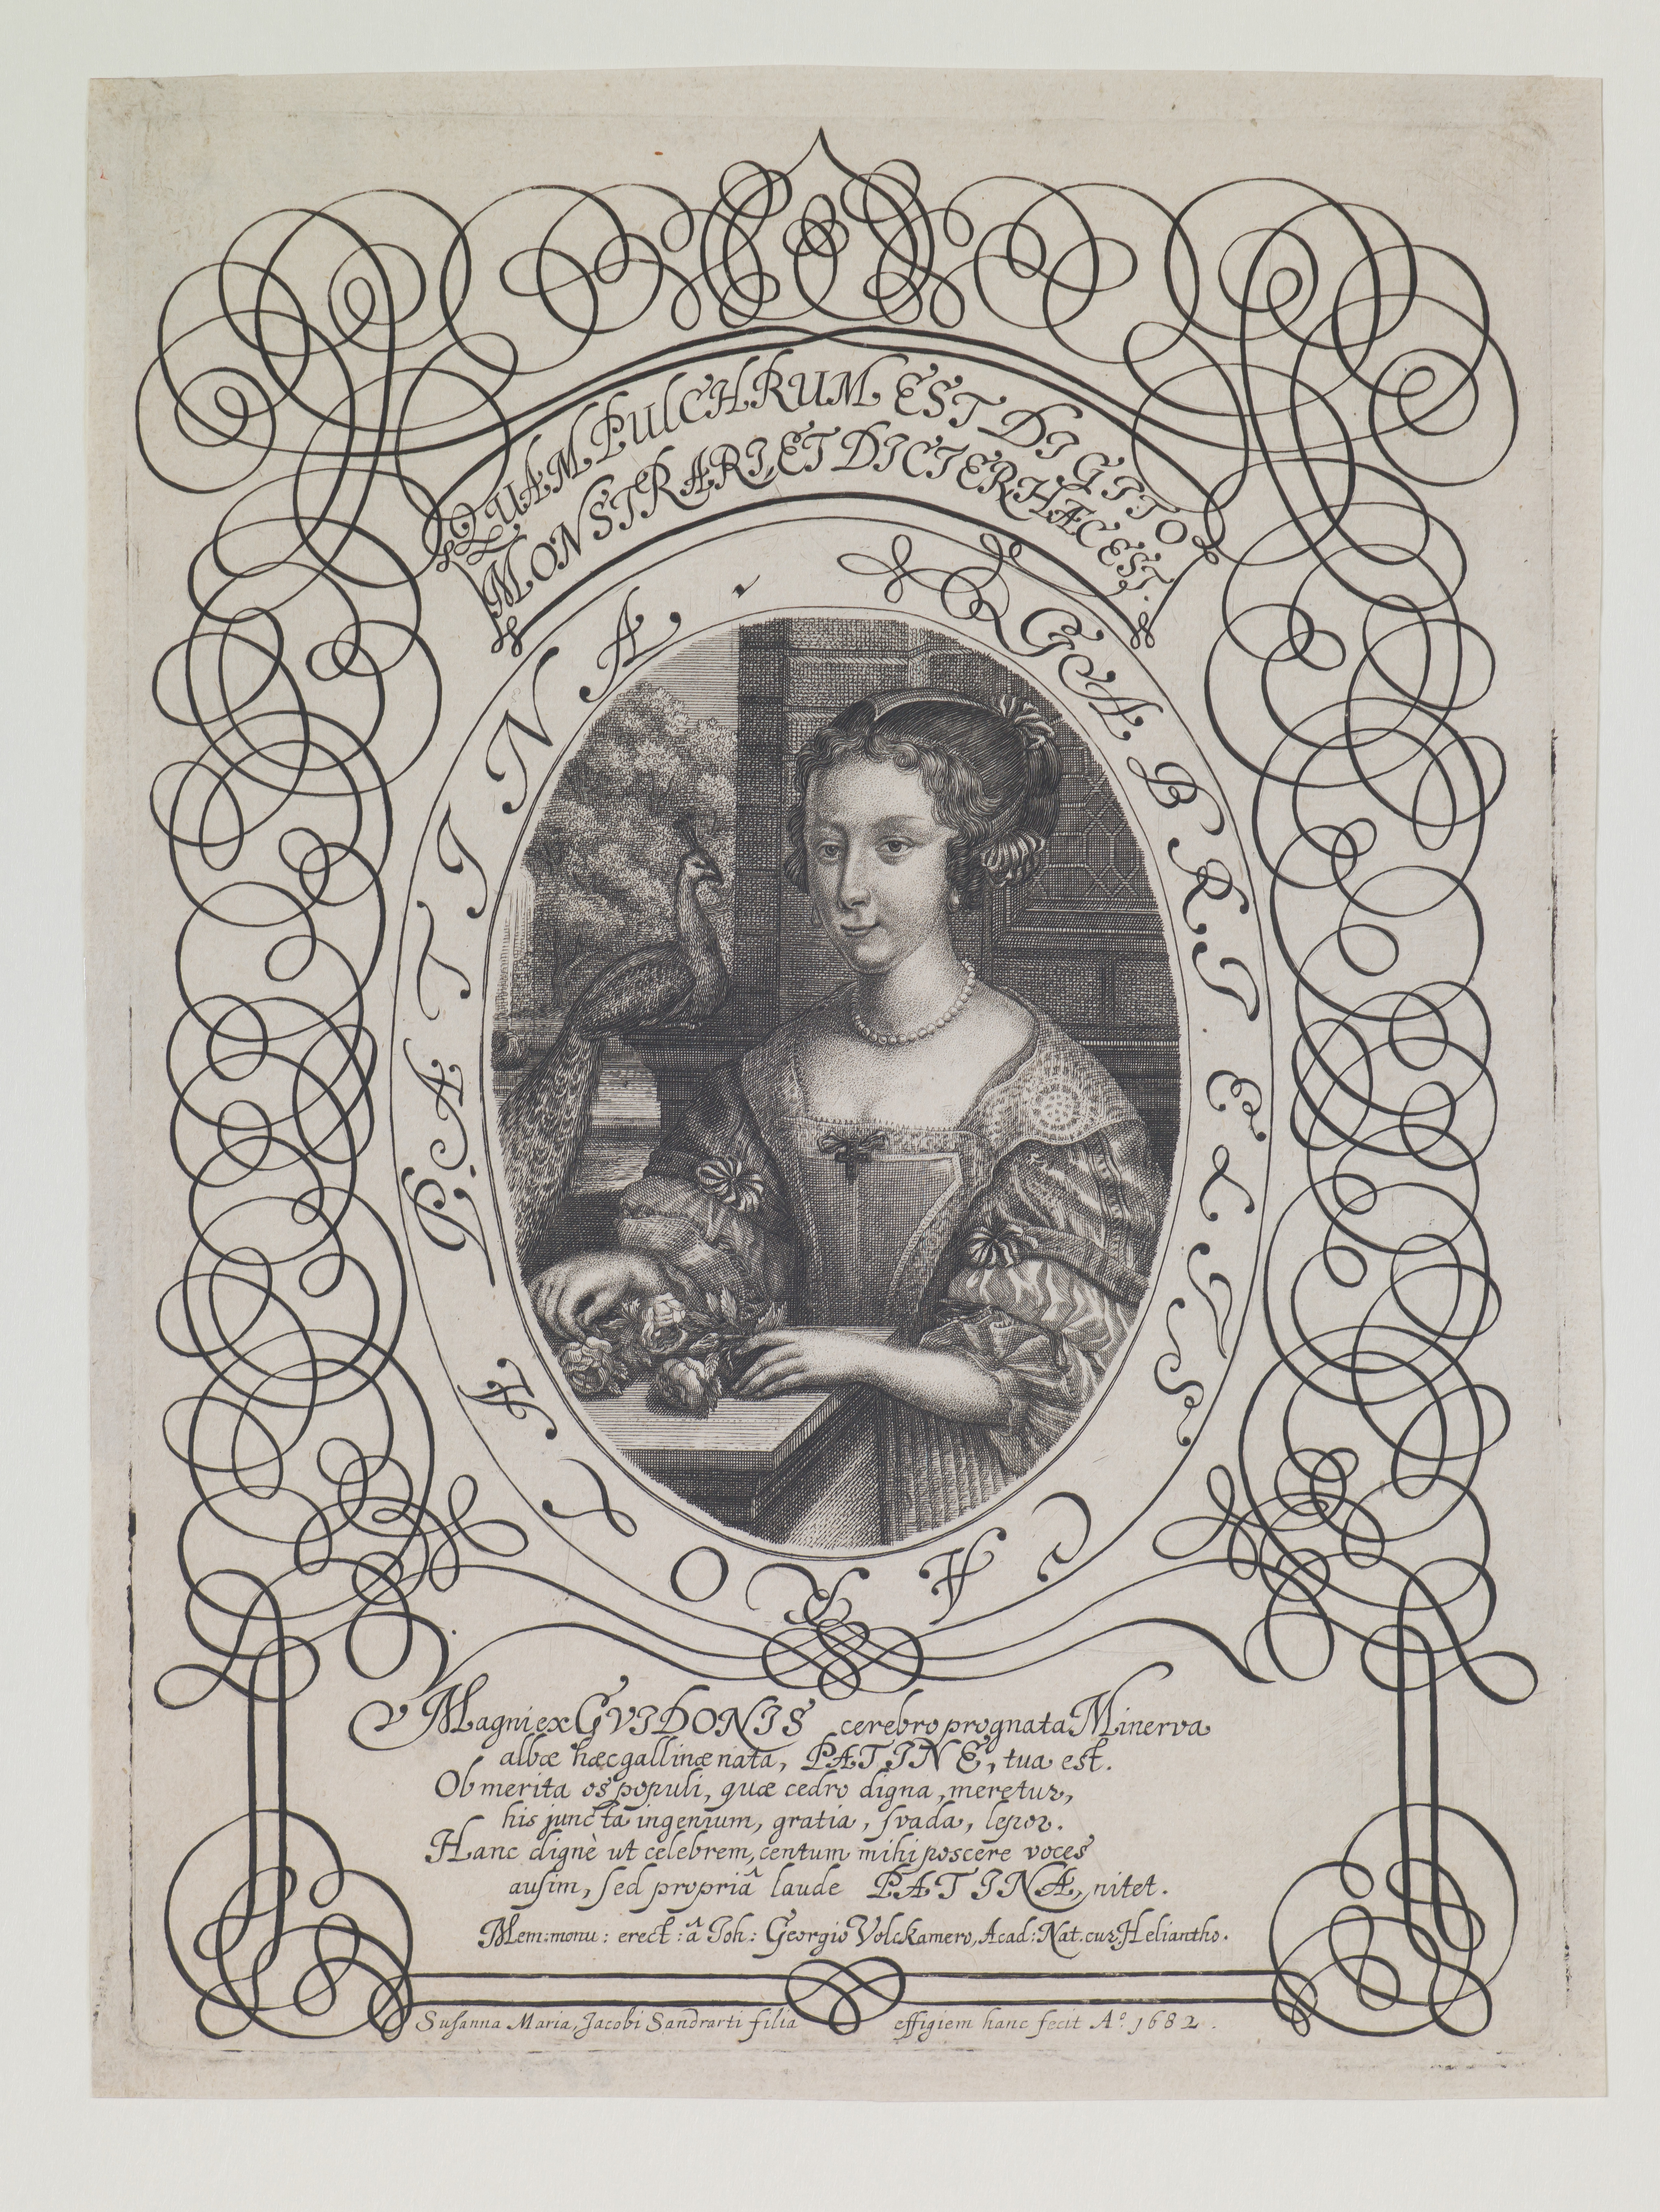 QUAM PULCHRUM EST DIGITO
MONSTRARI, ET DICIER HÆC EST.
GABRIELIS CAROLA PATINA,
Magni ex GVIDONIS cerebro prognata Minerva
albæ hæc gallinæ nata, PATINE, tua est.
Ob merita os populi, quæ cedro digna, meretur,
his juncta ingenium, gratia, svada, lepor.
Hanc dignè ut celebrem, centum mihi poscere voces
ausim, sed propriâ laude PATINA, nitet.
Mem: monu: erect: â Joh: Georgio Volckamero, Acad: Nat. cur: Heliantho.
Susanna Maria, Jacobi Sandrarti filia effigiem hanc fecit Aº. 1682.